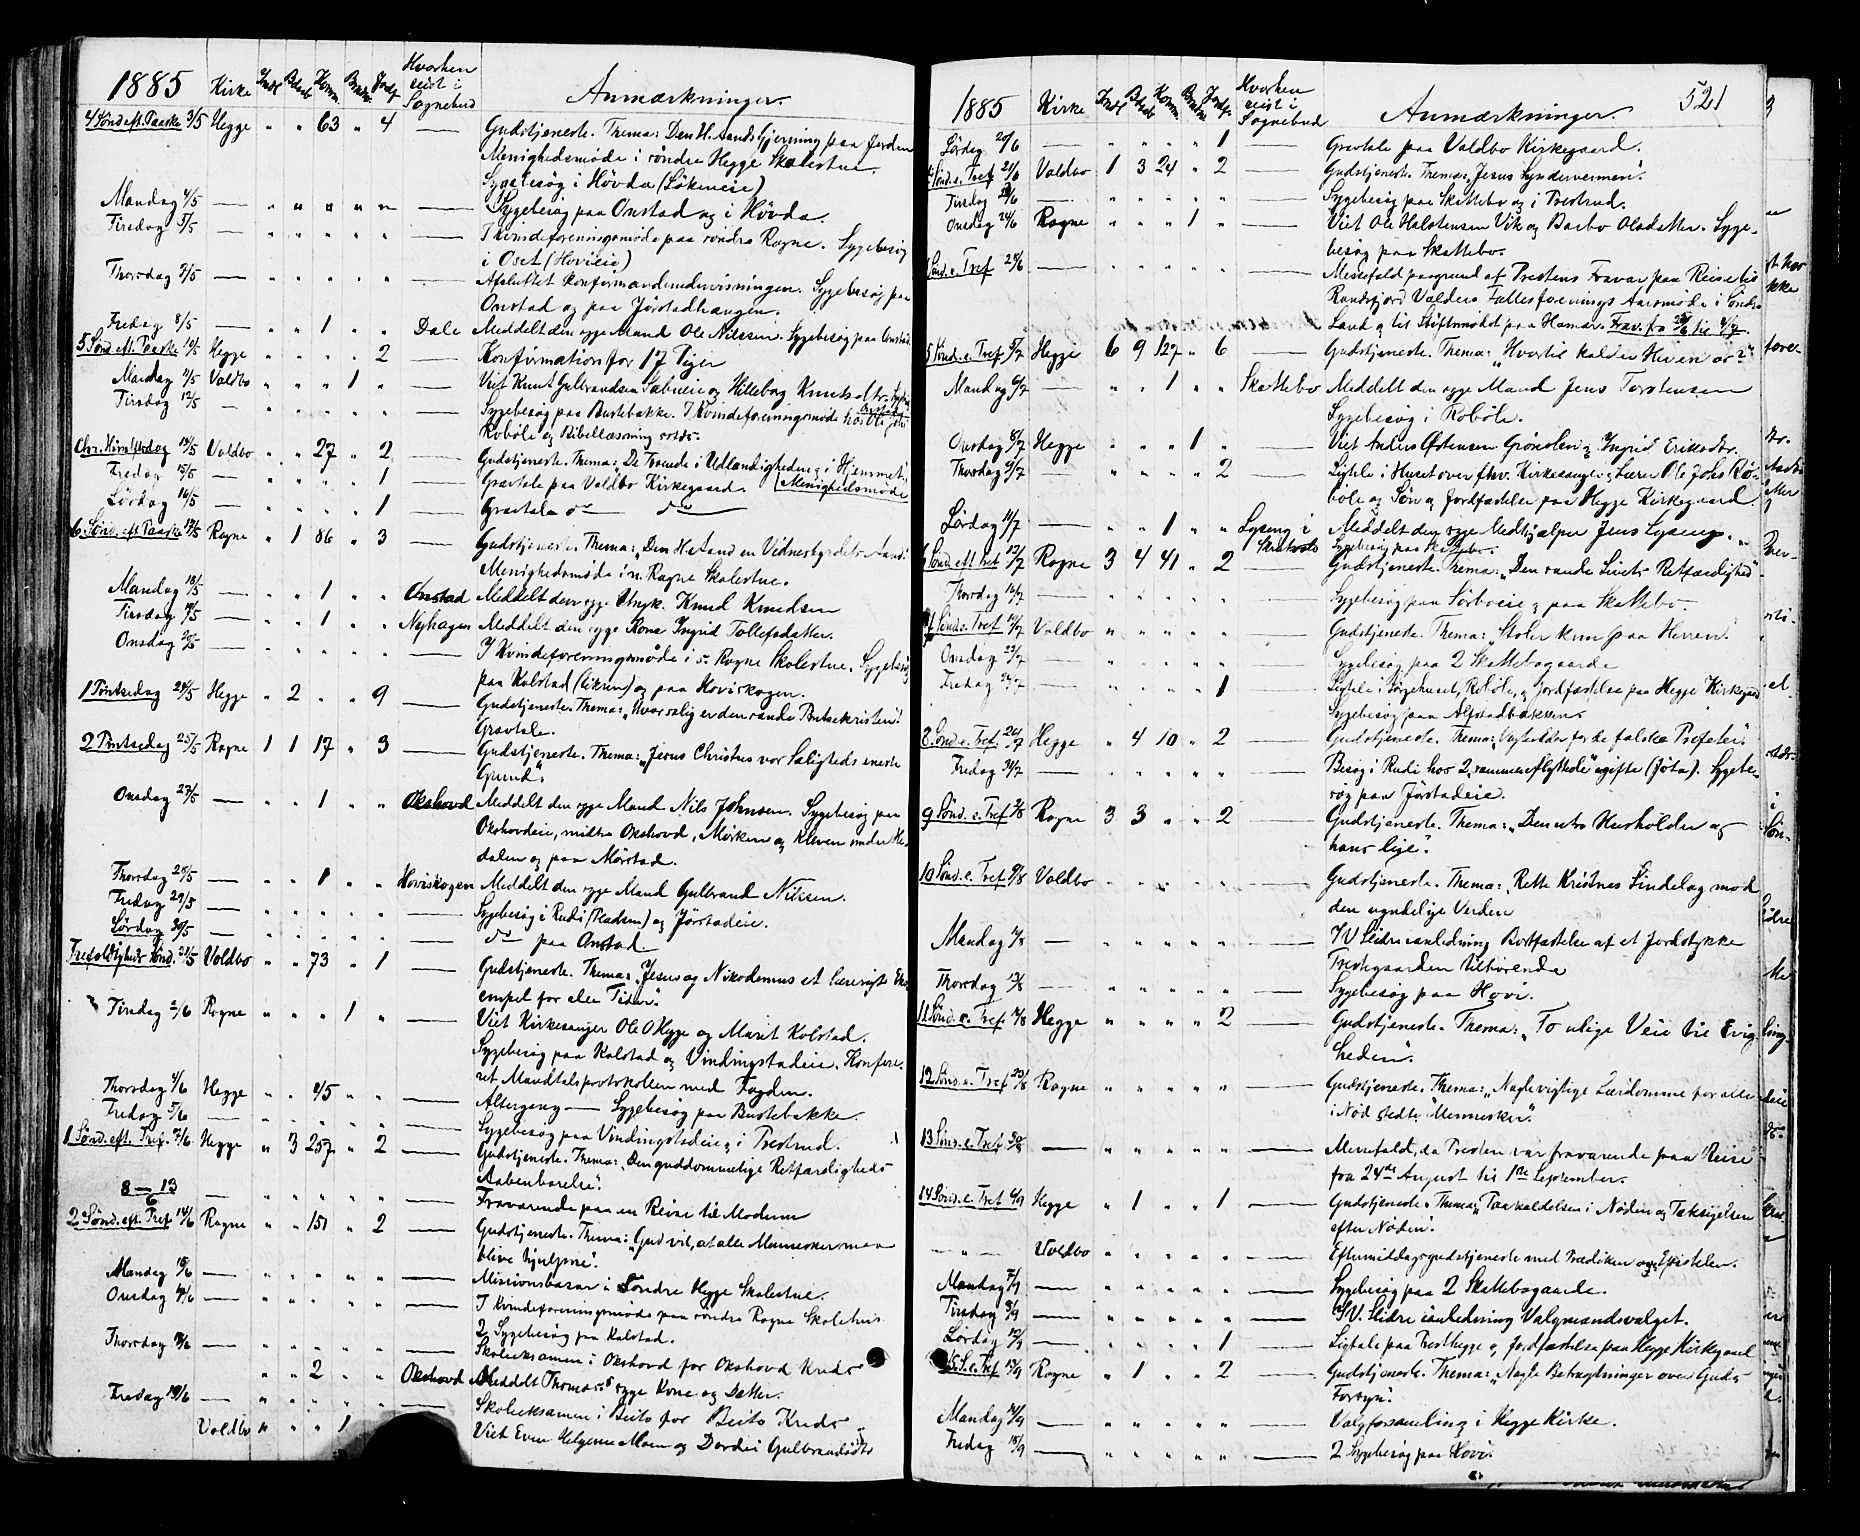 1885 Kirke Indl Bdaab Komm. Brudv. Jordf. Hvorhen reist i Sognebud Anmærkninger.
4 Sønd eft. Paaske 3/5 Hegge " " 63 " 4 — Gudstjeneste. Thema: Den H. Aands Gjerning paa Jorden
Menighedsmøde i søndre Hegge Skolestue.
Sygebesøg i Høvda (Løkeneie)
Mandag 4/5 — " " " " " — Sygebesøg paa Onstad og i Høvda.
Tirsdag 5/5 — " " " " " — I Kvindeforeningsmøde paa søndre Rogne. Sygebesøg
i Oset (Hovieie)
Thorsdag 7/5 — " " " " " — Afsluttet Konfirmandundervisningen. Sygebesøg paa
Onstad og paa Jørstadhaugen.
Fredag 8/5 — " " 1 " " Dale Meddelt den syge Mand Ole Nilssen. Sygebesøg paa Onstad
5 Sønd eft. Paaske 10/5 Hegge " " " " 2 — Konfirmation for 17 Piger
Mandag 11/5 Voldbo " " " 1 " — Viet Knut Gulbrandsen Sæbueie og Hilleborg Knutsdtr.
Tirsdag 12/5 — " " " " " — Sygebesøg paa Bustebakke. I Kvindeforeningsmøde hos Ole
Robøle og Bibellæsning sstds.
Chr. Himlfardag 14/5 Voldbo " " 27 " 2 — Gudstjeneste. Thema: "De Troende i Udlændigheden og i Hjemmet."
Fredag 15/5 — " " " " 1 — Gravtale paa Voldbo Kirkegaard. Menighedsmøde
Lørdag 16/5 — " " " " 1 — Gravtale do do
6. Sønd. eft Paaske 17/5 Rogne " 1 86 " 3 — Gudstjeneste. Thema: "Den H Aand en Vidnesbyrdets Aand"
Menighedsmøde i n. Rogne Skolestue.
Mandag 18/5 — " " 1 " " Onstad Meddelt den syge Ungk. Knud Knudsen
Tirsdag 19/5 — " " 1 " " Nyhagen Meddelt den syge Kone Ingrid Tollefsdatter.
Onsdag 20/5 — " " " " " — I Kvindeforeningsmøde i s. Rogne Skolestue. Sygebesøg
paa Kolstad (Eikrem) og paa Hoviskogen.
1 Pintsedag 24/5 Hegge " 2 " " 9 — Gudstjeneste. Thema: "Hvor salig er den sande Pintsekristen".
Gravtale.
2 Pintsedag 25/5 Rogne 1 1 17 " 3 — Gudstjeneste. Thema: "Jesus Christus vor Saligheds eneste
Grund".
Onsdag 27/5 — " " 1 " " Okshovd Meddelt den syge Mand Nils Johnsen. Sygebesøg paa
Okshovdeie, midtre Okshovd, Mørken og Kleven under He-
dalen og paa Mørstad.
Thorsdag 28/5 — " " 1 " " Hoviskogen Meddelt den syge Mand Gulbrand Nilssen.
Fredag 29/5 — " " " " " — Sygebesøg i Rudi (Pladsen) og Jørstadeie.
Lørdag 30/5 — " " " " " — do paa Onstad.
Trefoldigheds Sønd. 31/5 Voldbo " " 73 " 1 — Gudstjeneste. Thema: "Jesus og Nikodemus et lærerigt Ex-
empel for alle Tider".
Tirsdag 2/6 Rogne " " " 1 " — Viet Kirkesanger Ole O Hegge og Marit Kolstad.
Sygebesøg paa Kolstad og Vindingstadeie. Konfere-
ret Mandtalsprotokollen med Fogden.
Thorsdag 4/6 Hegge " " 45 " " — Altergang — Sygebesøg paa Bustebakke.
Fredag 5/6 — " " " " " — Sygebesøg paa Vindingstadeie og i Prestrud.
1 Sønd. eft. Tref. 7/6 Hegge " 3 257 " 2 — Gudstjeneste. Thema: "Den guddommelige Retfærdigheds
Aabenbarelse".
8—13/6 — " " " " " — Fraværende paa en Reise til Modum
2 Sønd. eft. Tref 14/6 Rogne " " 151 " 2 — Gudstjeneste. Thema: "Gud vil, at alle Mennesker maa
blive hjulpne".
Mandag 15/6 — " " " " " — Missionsbazar i Søndre Hegge Skolestue.
Onsdag 17/6 — " " " " " — I Kvindeforeningsmøde paa søndre Rogne Skolehus
2 Sygebesøg paa Kolstad.
Thorsdag 18/6 — " " " " " — Skoleeksamen i Okshovd for Okshovd Kreds
" " 2 " " Okshovd Meddelt Thomas's syge Kone og Datter.
Fredag 19/6 — " " " " " — Skoleeksamen i Beito for Beito Kreds
Voldbo " " " 1 Viet Even Helgesen Moen og Dordei Gulbrandsdtr
521
1885 Kirke Indl Bdaab Komm. Brudv. Jordf. Hvorhen reist i Sognebud Anmærkninger.
Lørdag 20/6 — " " " " 1 — Gravtale paa Voldbo Kirkegaard.
3 Sønd. e. Tref 21/6 Voldbo 1 3 24 " 2 — Gudstjeneste. Thema: "Jesus Syndervennen".
Tirsdag 23/6 — " " " " " — Sygebesøg paa Skattebo og i Prestrud.
Onsdag 24/6 Rogne " " " 1 " — Viet Ole Halstensen Vik og Barbo Olsdatter. Syge-
besøg paa Skattebo.
Sønd. e. Tref 28/6 — " " " " " — Messefald paagrund af Prestens Fravær paa Reise til
Randsfjord Valders Fællesforenings Aarsmøde i Søndre
Land og til Stiftsmødet paa Hamar. Frav. fra 26/6 til 4/7.
5 Sønd. e. Tref 5/7 Hegge 6 9 127 " 6 — Gudstjeneste. Thema: "Hvortil kalder Herren os?"
Mandag 6/7 — " " 1 " " Skattebo Meddelt den syge Mand Jens Torstensen
Sygebesøg i Robøle.
Onsdag 8/7 Hegge " " " 1 " — Viet Anders Østensen Grønolen og Ingrid Eriksdtr.
Thorsdag 9/7 — " " " " 2 — Ligtale i Huset over fhv. Kirkesanger og Lærer Ole Johs Rø-
bøle og Søn og Jordfæstelse paa Hegge Kirkegaard.
Lørdag 11/7 — " " 1 " " Lyseng i Skattebo Meddelt den syge Medhjælper Jens Lyseng.
Sygebesøg paa Skattebo.
6 Sønd eft Tref 12/7 Rogne 3 4 41 " 2 — Gudstjeneste. Thema: "Den sande Livets Retfærdighed".
Thorsdag 16/7 — " " " " " — Sygebesøg paa Sørboeie og paa Skattebo.
7 Sønd e. Tref 19/7 Voldbo " " " " " — Gudstjeneste. Thema: "Stoler kun paa Herren".
Onsdag 22/7 — " " " " " — Sygebesøg paa 2 Skattebogaarde
Fredag 24/7 — " " " " 1 — Ligtale i Sørgehuset, Robøle, og Jordfæstelse paa Hegge Kirkegaard
Sygebesøg paa Alfstadbakken.
8. Sønd. e. Tref. 26/7 Hegge " 4 10 " 2 — Gudstjeneste. Thema: "Vogter eder for de falske Profeter".
Fredag 31/7 — " " " " " — Besøg i Rudi hos 2 "sammenflyttede" ugifte (Jøta). Sygebe-
søg paa Jørstadeie.
9 Sønd. e. Tref 2/8 Rogne 3 3 " " 2 — Gudstjeneste. Thema: "Den utro Husholder og
hans lige".
10 Sønd. e. Tref 9/8 Voldbo " " " " " — Gudstjeneste. Thema: "Rette Kristnes Sindelag mod
den ugudelige Verden
Mandag 10/8 — " " " " " — I V Slidre i anledning Bortfæstelse af et Jordstykke
Prestegaarden tilhørende
Thorsdag 13/8 — " " " " " — Sygebesøg paa Hovi.
11 Sønd. e. Tref 16/8 Hegge " " " " 2 — Gudstjeneste. Thema: "To ulige Veie til Evig-
heden".
12 Sønd. e. Tref 23/8 Rogne " " " " " — Gudstjeneste. Thema: "Nogle vigtige Lærdomme for alle
i Nød stedte Mennesker".
13 Sønd. e. Tref 30/8 — " " " " " — Messefald, da Presten var fraværende paa Reise
fra 24de August til 1ste September.
14 Sønd. e. Tref 6/9 Hegge " 1 " " 1 — Gudstjeneste. Thema: "Paakaldelsen i Nøden og Taksigelsen
efter Nøden".
— " — Voldbo " " " " " — Eftermiddagsgudstjeneste med Prædiken over Epistelen.
Mandag 7/9 — " " " " " — Sygebesøg paa 2 Skattebogaarde.
Tirsdag 8/9 — " " " " " — I V. Slidre i anledning Valgmandsvalget.
Lørdag 12/9 — " " " " 1 — Ligtale paa Presthegge og Jordfæstelse paa Hegge Kirkegaard
15. S. e. Tref 13/9 Rogne " 1 " " 2 — Gudstjeneste. Thema: "Nogle Betragtninger over Guds
Forsyn".
Mandag 14/9 — " " " " " — Valgforsamling i Hegge Kirke.
Fredag 18/9 — " " " " " — 2 Sygebesøg paa Hovi.